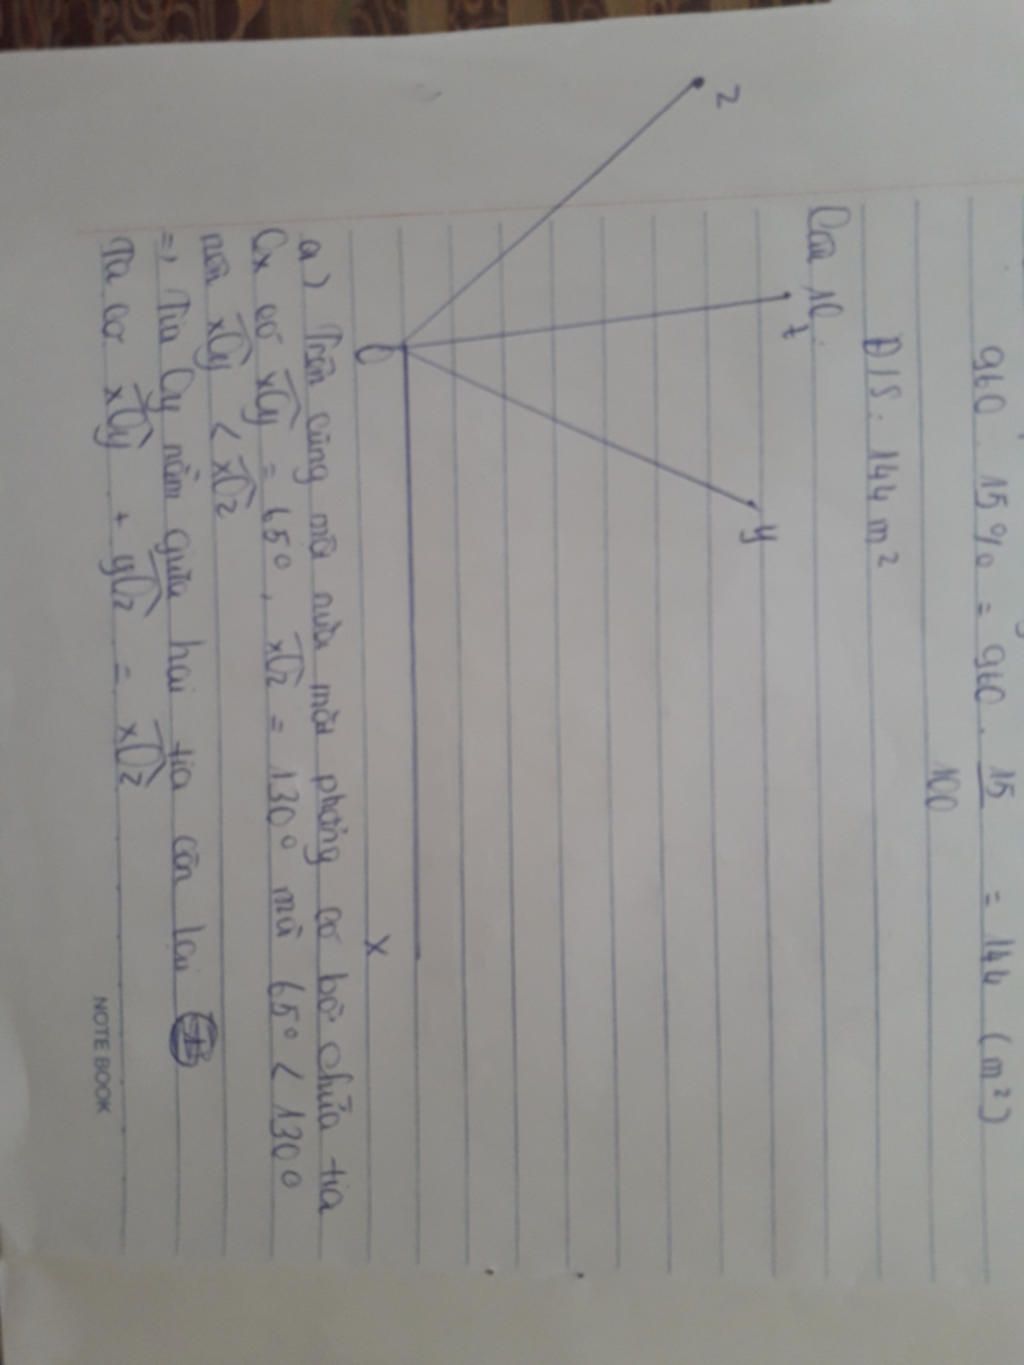 960 . 15% = 960 . 15/100 = 144 (m²)
Đ/S : 144 m²
Câu 10:
z
t
y
O
x
a) Trên cùng một nửa mặt phẳng có bờ chứa tia
Ox có xOy = 65°, xOz = 130° mà 65° < 130°
nên xOy < xOz
=> Tia Oy nằm giữa hai tia còn lại
Ta có xOy + yOz = xOz
NOTE BOOK